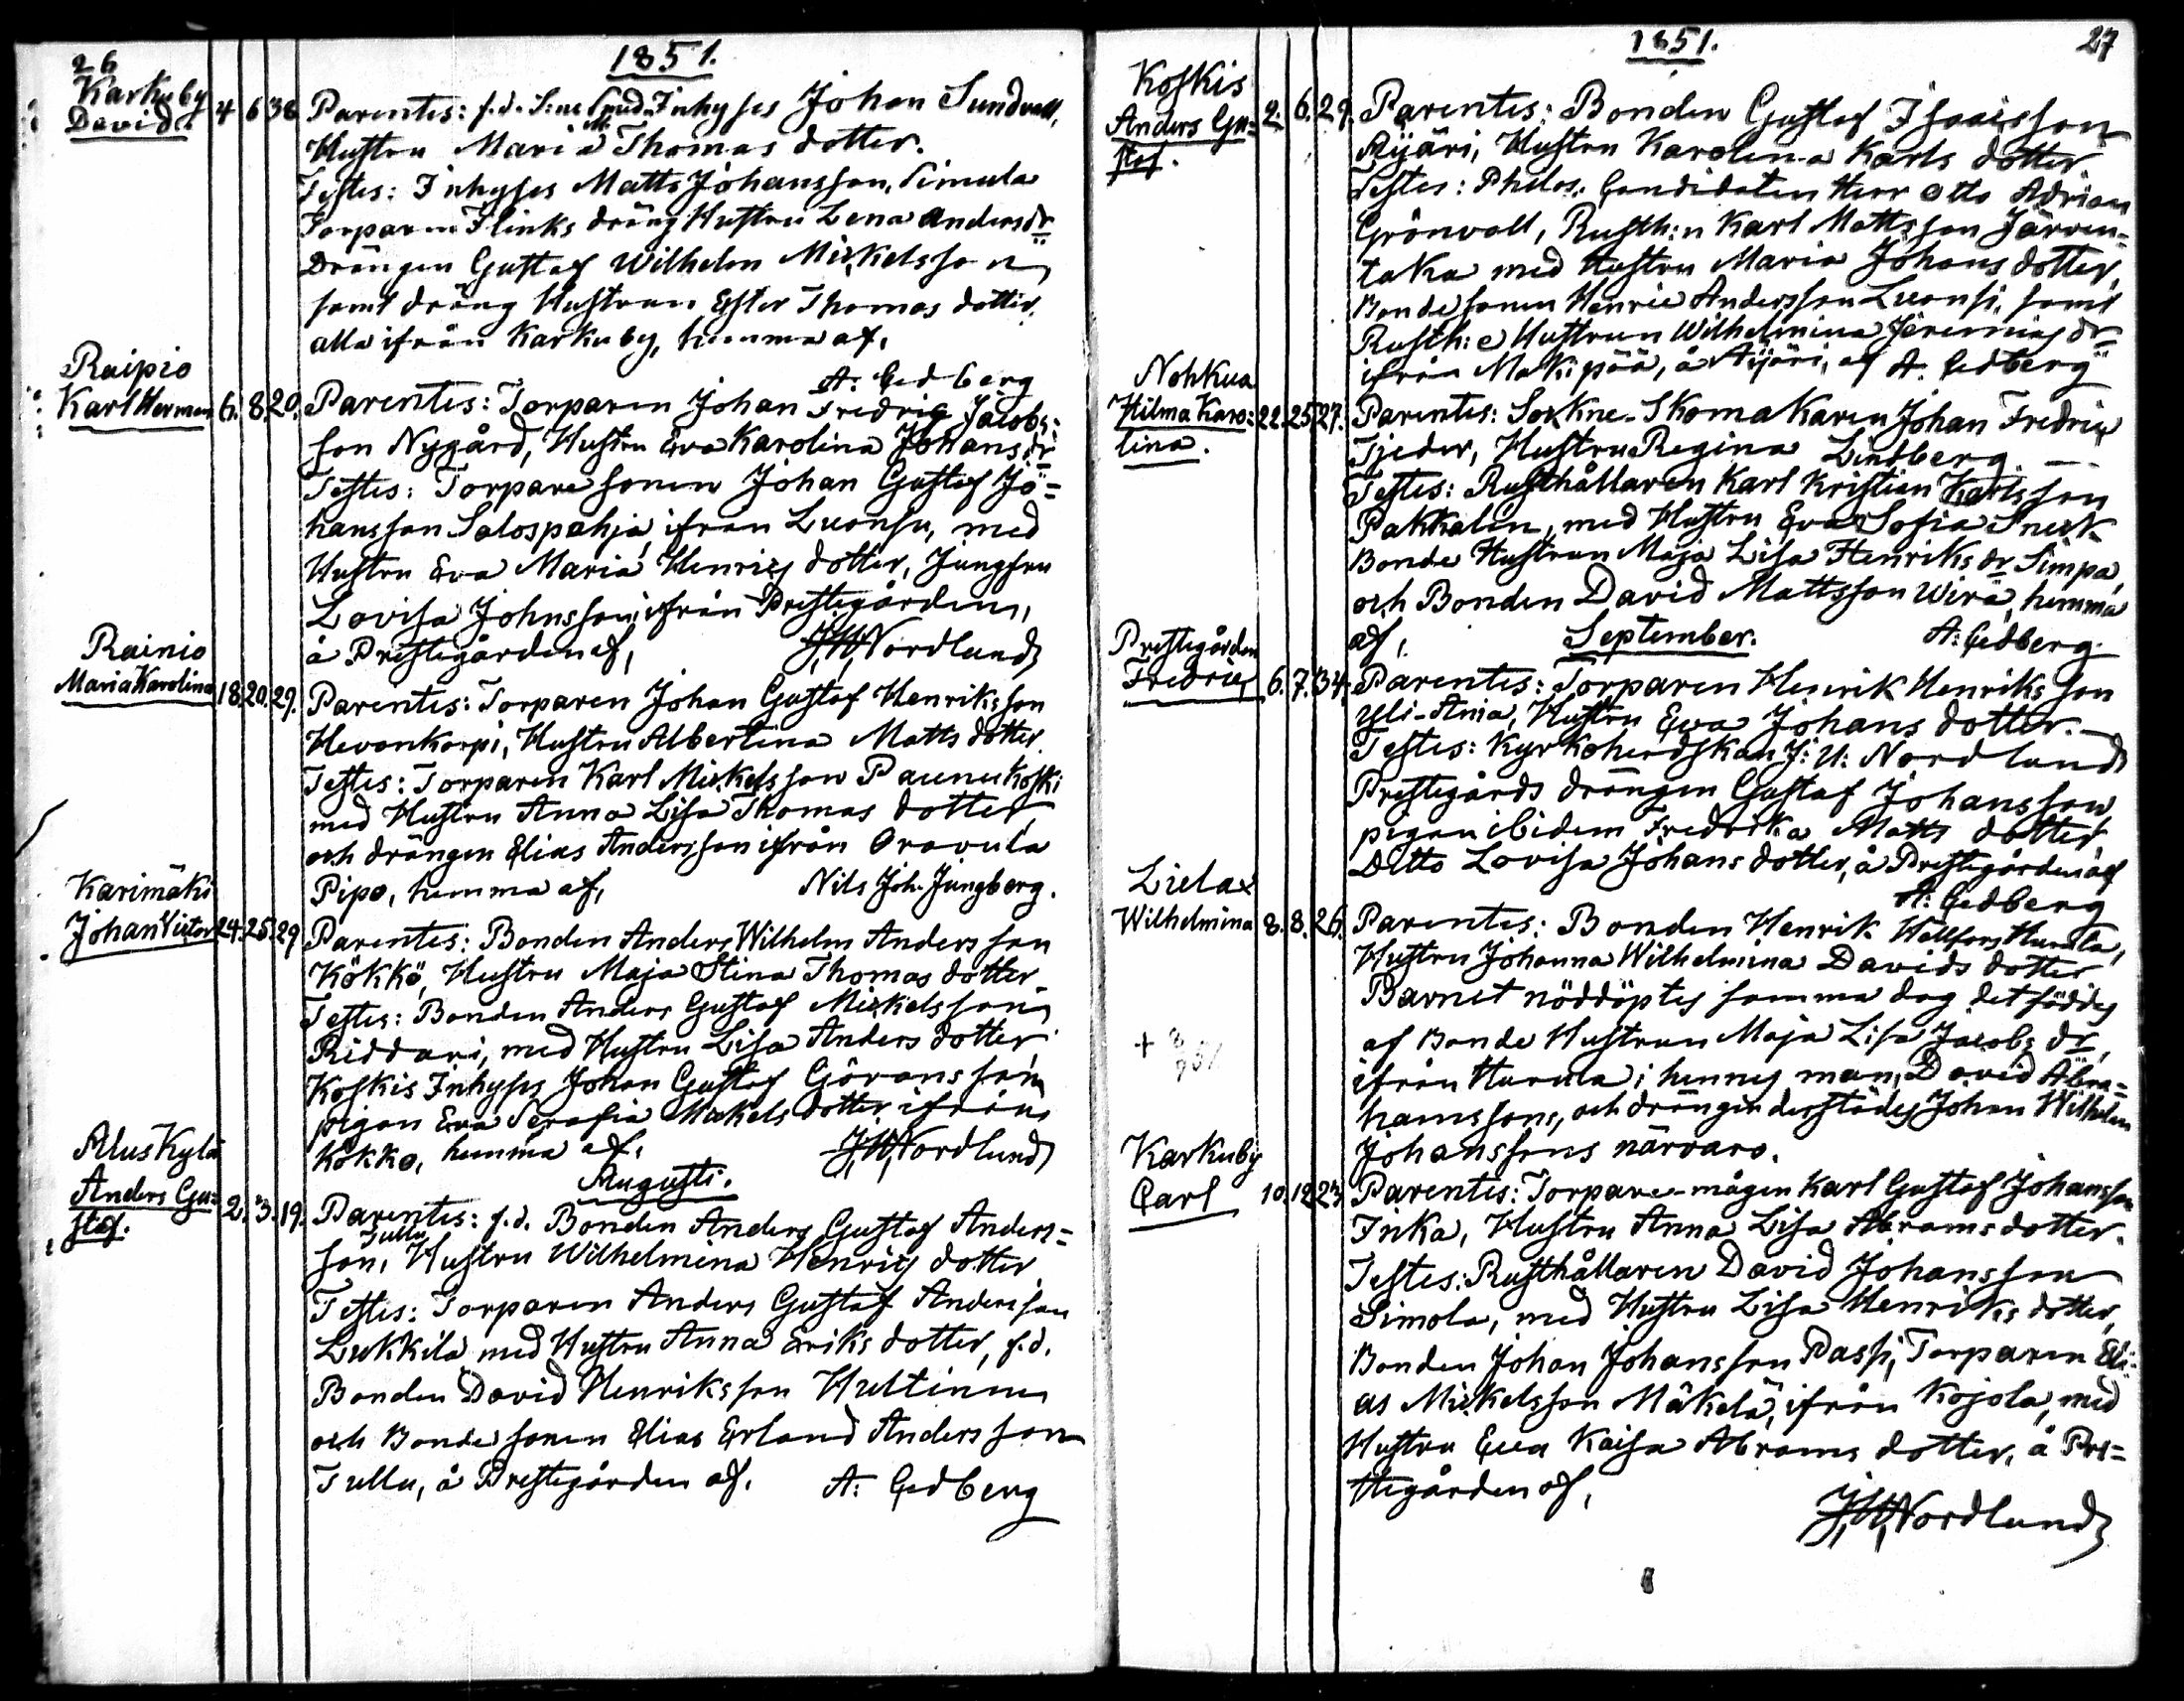 26
1851.
Karkuby
David.
4 6 38
Parentes: f.d. S:ne Smed. Inhyses Johan Sundvall,
Hustru Maria Thomas dotter.
Testes: Inhyses Matts Johansson, Simula
Torparen Flinks dräng Hustru Lena Andersdr
Drängen Gustaf Wilhelm Mickelsson
samt dräng Hustrun Ester Thomas dotter
alla ifrån Karkuby, hemma af,
A: Gedberg
Raipio
Karl Herman
6. 8. 20.
Parentes: Torparen Johan Fredric Jacobs-
son Nygård, Hustru Eva Karolina Johansdr
Testes: Torpare sonen Johan Gustaf Jo=
hansson Salospohja ifrån Luonsu, med
Hustru Eva Maria Henrics dotter, Jungfru
Lovisa Johnsson, ifrån Prestegården,
å Prestegården af,
J,U,Nordlund
Rainio
Maria Karolina
18. 20. 29.
Parentes: Torparen Johan Gustaf Henriksson
Hevonkorpi, Hustru Albertina Matts dotter.
Testes: Torparen Karl Mickelsson Paunukoski
med Hustru Anna Lisa Thomas dotter
och drängen Elias Andersson ifrån Oravula
Pipo, hemma af,
Nils Joh. Jungberg.
Karimäki
Johan Victor
24. 25. 29
Parentes: Bonden Anders Wilhelm Andersson
Kökkö, Hustru Maja Stina Thomas dotter
Testes: Bonden Anders Gustaf Mickelsson
Riddari, med Hustru Lisa Anders dotter
Koskis Inhyses Johan Gustaf Göransson
pigan Eva Serafia Mickels dotter ifrån
Kökkö, hemma af,
J,U,Nordlund
Augusti.
Aluskylä
Anders Gu=
staf.
2. 3. 19.
Parentes: f.d. Bonden Anders Gustaf Anders=
Tullu
son, Hustru Wilhelmina Henrics dotter
Testes: Torparen Anders Gustaf Andersson
Lukkila med Hustru Anna Eriks dotter, f.d.
Bonden David Henriksson Hultinen
och Bonde sonen Elias Erland Andersson
Tullu, å Prestegården af.
A: Gedberg
27
1851.
Koskis
Anders Gu=
staf.
2. 6. 29.
Parentes: Bonden Gustaf Isaacsson
Äijäri, Hustru Karolina Karls dotter
Testes: Philos. Candidaten Herr Otto Adrian
Grönvall, Rusth:n Karl Mattsson Järven=
taka med Hustru Maria Johans dotter,
Bonde sonen Henric Andersson Luonsi, samt
Rusth:e Hustrun Wilhelmina Jeremias dr
ifrån Mäkipää, å Äijäri, af A. Gedberg
Nohkua
Hilma Karo:
lina.
22. 25. 27.
Parentes: Sockne-Skomakaren Johan Fredric
Tjeder, Hustru Regina Lindberg.
Testes: Rusthållaren Karl Kristian Karlsson
Pakkalin, med Hustru Eva Sofia Sneck
Bonde Hustrun Maja Lisa Henriks dr Simpa,
och Bonden David Mattsson Wirä, hemma
af,
A: Gedberg.
September.
Prestegården
Fredric,
6. 7. 34.
Parentes: Torparen Henrik Henriksson
Yli-Ania, Hustru Eva Johans dotter.
Testes: Kyrkoherdskan J: U: Nordlund
Prestegårds drängen Gustaf Johansson
pigan ibidem Fredrika Matts dotter
Ditto Lovisa Johans dotter, å Prestegården af
A: Gedberg
Lielax
Wilhelmina
8. 8. 26.
Parentes: Bonden Henrik Hellfors Hurula,
Hustru Johanna Wilhelmina Davids dotter
Barnet nöddöptes samma dag det föddes
af Bonde Hustrun Maja Lisa Jacobs dr,
ifrån Hurula i hennes man, David Abra=
hamssons, och drängen derstädes Johan Wilhelm
Johanssons närvaro.
+ 8/9 51
Karkuby
Carl
10. 12. 23
Parentes: Torpare-mågen Karl Gustaf Johansson
Inka, Hustru Anna Lisa Abrams dotter.
Testes: Rusthållaren David Johansson
Simola, med Hustru Lisa Henriks dotter,
Bonden Johan Johansson Passi, Torparen Eli=
as Mickelsson Mäkelä, ifrån Kojola, med
Hustru Eva Kaisa Abrams dotter, å Pre=
stegården af,
J,U,Nordlund